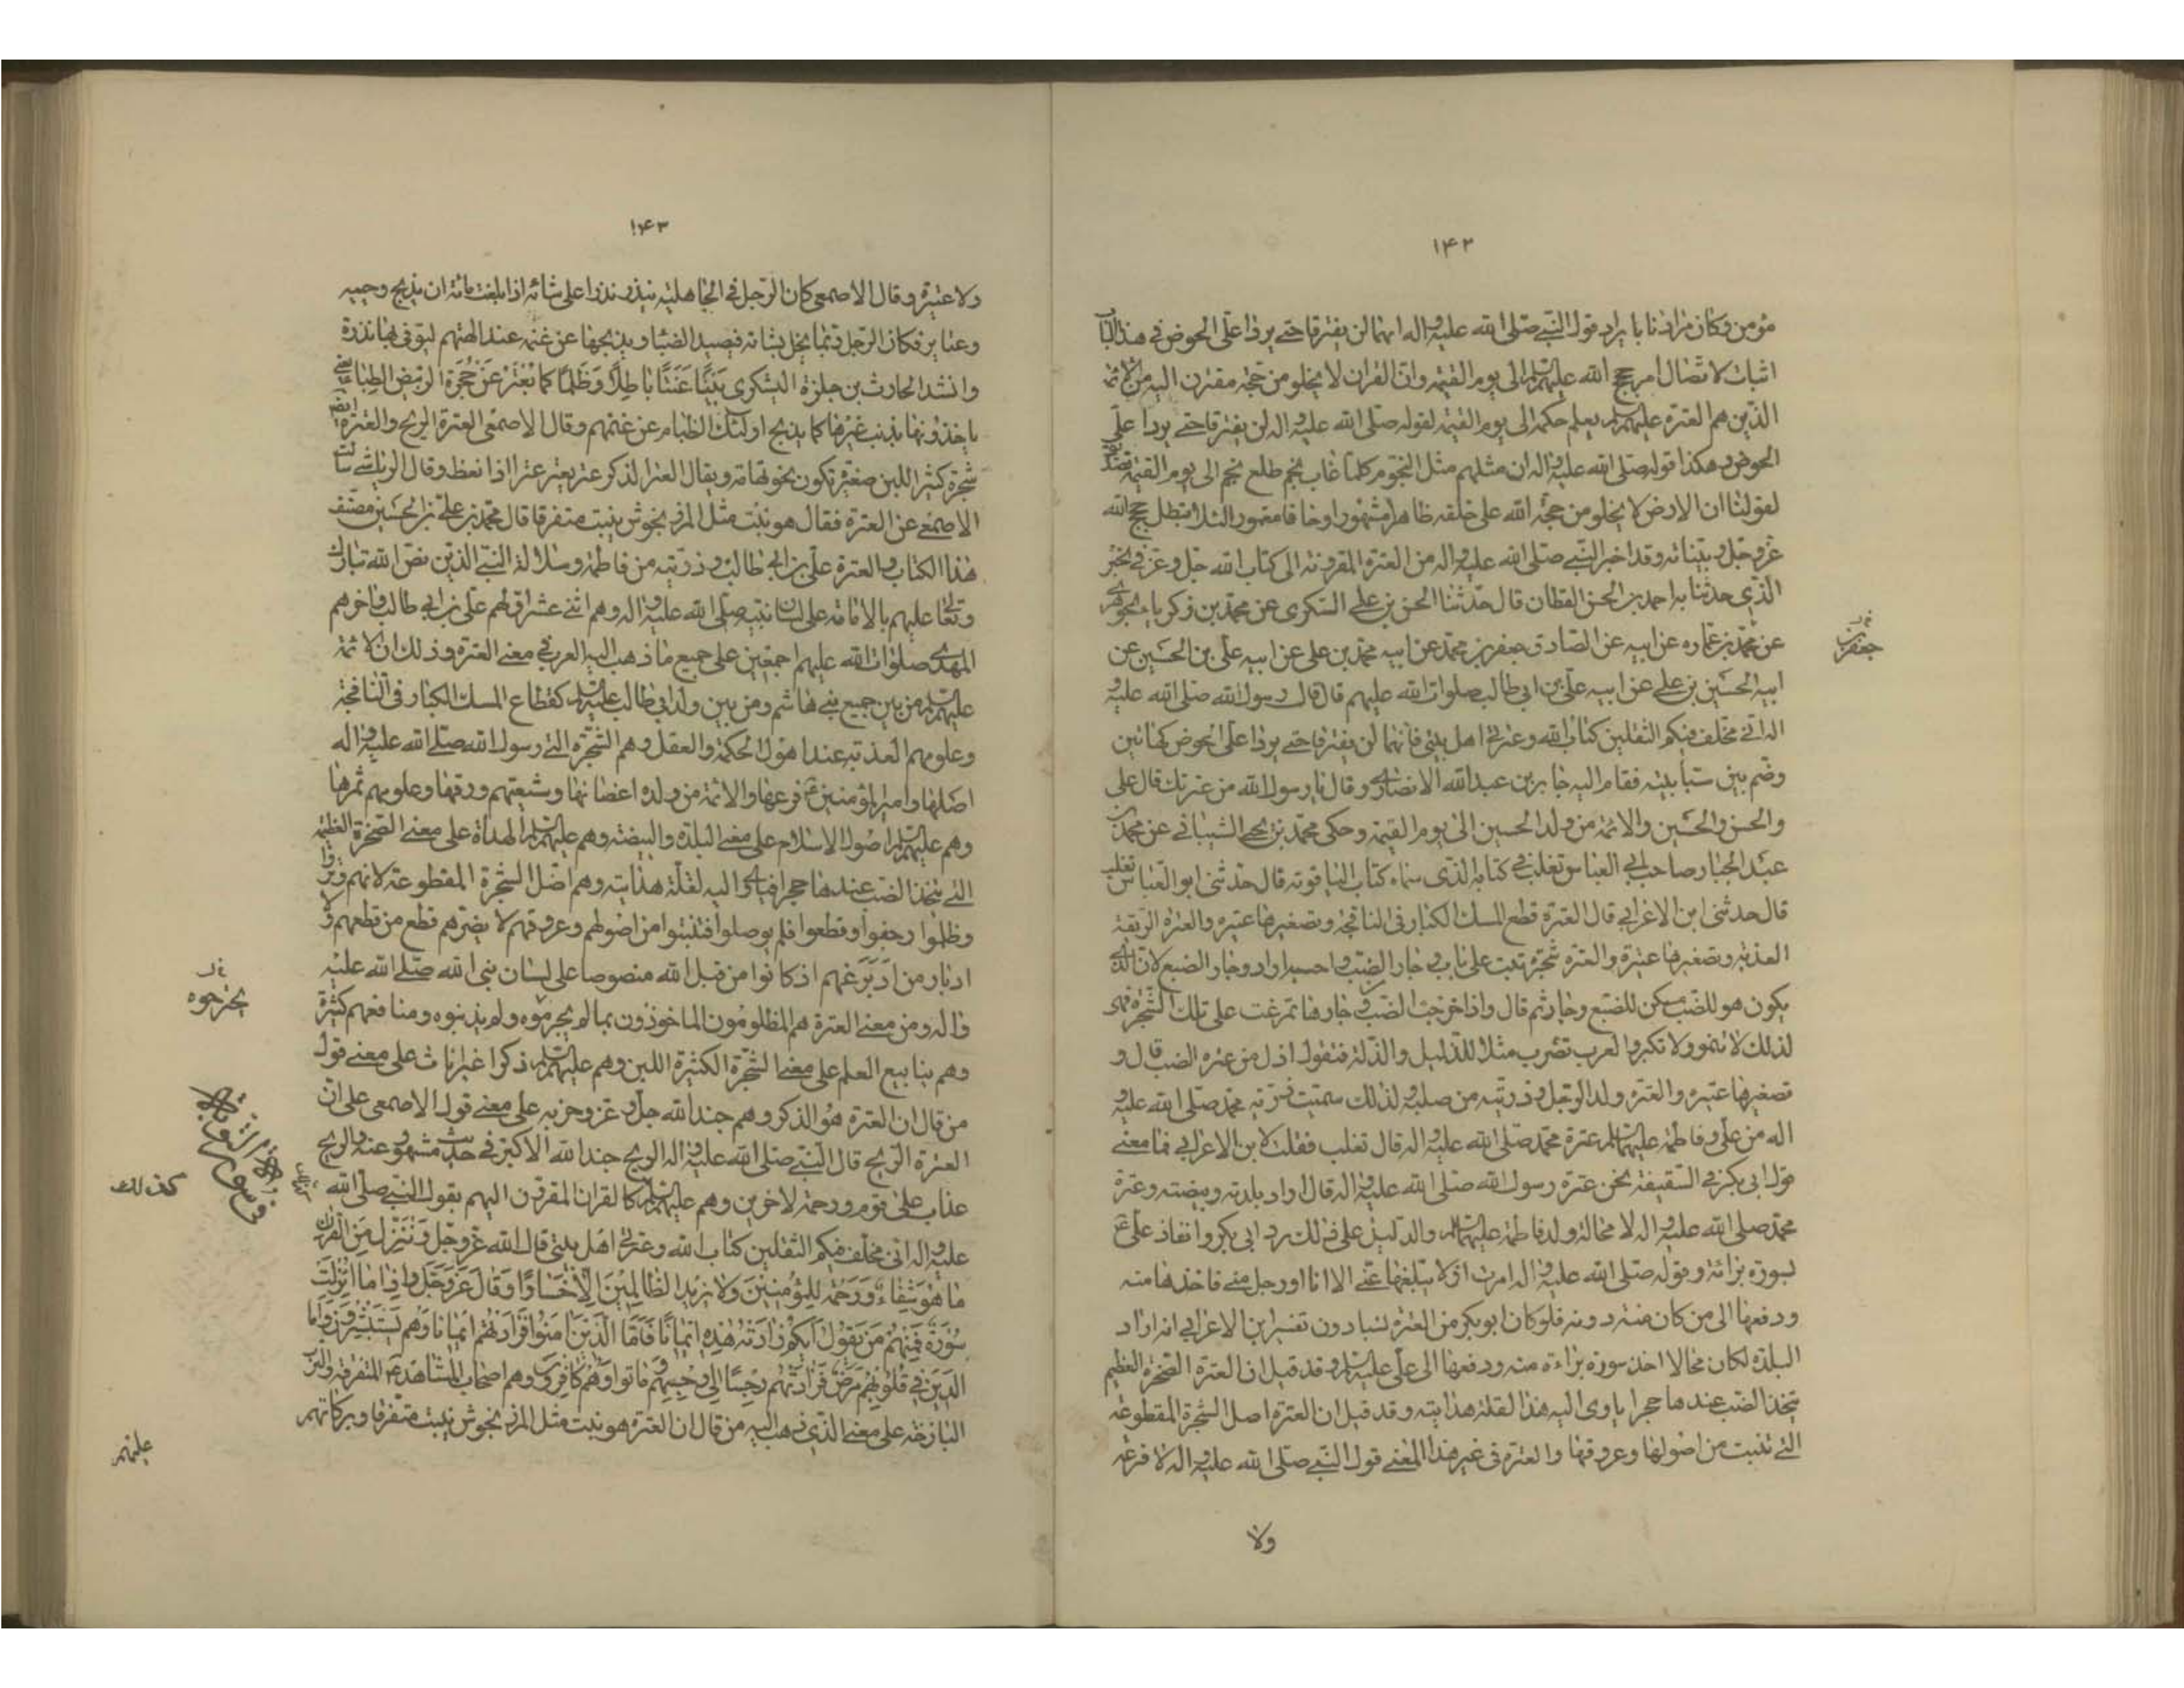 ١۴٢
مؤمن وكان مرادنا بايراد قول النبي صلى الله عليه واله انهما لن يفترقا حتى يردا على الحوض في هذا الباب
اثبات لاتصال امر حجج الله عليهم السلم الى يوم القيمة وان القران لا يخلو من حجة مقترن اليه من الائمة
الذين هم العترة عليهم السلم يعلم حكمه الى يوم القيمة لقوله صلى الله عليه واله لن يفترقا حتى يردا على
الحوض وهكذا قوله صلى الله عليه واله ان مثلهم مثل النجوم كلما غاب نجم طلع نجم الى يوم القيمة تصديق
لقولنا ان الارض لا يخلو من حجة الله على خلقه ظاهر مشهور او خاف مغمور لئلا تبطل حجج الله
عز وجل وبيناته وقد اخبر النبي صلى الله عليه واله من العترة المقرونة الى كتاب الله جل وعز في الخبر
الذي حدثنا به احمد بن الحسن القطان قال حدثنا الحسن بن علي السكرى عن محمد بن زكرياء الجوهري
عن محمد بن عمارة عن ابيه عن الصادق جعفر بن محمد عن ابيه محمد بن على عن ابيه على بن الحسين عن
ابيه الحسين بن على عن ابيه على بن ابى طالب صلوات الله عليهم قال قال رسول الله صلى الله عليه و
اله انى مخلف فيكم الثقلين كتاب الله وعترتى اهل بيتى فانهما لن يفترقا حتى يردا على الحوض كهاتين
وضم بين سبابتيه فقام اليه جابر بن عبد الله الانصارى وقال يا رسول الله من عترتك قال على
والحسن والحسين والائمة من ولد الحسين الى يوم القيمة وحكى محمد بن بحر الشيبانى عن محمد بن
عبد الجبار صاحب ابى العباس تغلب في كتابه الذى سماه كتاب الياقوتة قال حدثنى ابو العباس تغلب
قال حدثنى ابن الاعرابى قال العترة قطع المسك الكبار فى النافجة وتصغيرها عتيرة والعترة الريقة
العذبة وتصغيرها عتيرة والعترة شجرة تنبت على باب وجار الضب واحسبه اراد وجار الضبع لان الذى
يكون هو للضب مكن وللضبع وجار ثم قال واذا خرجت الضب من وجارها تمرغت على تلك الشجرة فهى
لذلك لا تنمو ولا تكبر والعرب تضرب مثلا للذليل والذلة فتقول اذل من عترة الضب قال و
تصغيرها عتيرة والعترة ولد الرجل وذريته من صلبه ولذلك سميت ذرية محمد صلى الله عليه و
اله من على وفاطمة عليهما السلم عترة محمد صلى الله عليه واله قال تغلب فقلت لابن الاعرابى فما معنى
قول ابى بكر في السقيفة نحن عترة رسول الله صلى الله عليه واله قال اراد بلدته وبيضته وعترة
محمد صلى الله عليه واله لا محالة ولد فاطمة عليها السلم والدليل على ذلك رد ابى بكر وانفاذ على ع
بسورة براءة وقوله صلى الله عليه واله امرت ان لا يبلغها عنى الا انا او رجل منى فاخذها منه
ودفعها الى من كان منه دونه فلو كان ابو بكر من العترة نسبا دون تفسير ابن الاعرابى انه اراد
البلدة لكان محالا اخذ سورة براءة منه ودفعها الى على عليه السلم وقد قيل ان العترة الصخرة العظيم
يتخذ الضب عندها حجرا ياوى اليه هذا لقلة هدايته وقد قيل ان العترة اصل الشجرة المقطوعة
التى تنبت من اصولها وعروقها والعترة فى غير هذا المعنى قول النبى صلى الله عليه واله لا فرعة
ولا
جعفر بن
١۴٣
ولا عتيرة وقال الاصمعى كان الرجل فى الجاهلية ينذر نذرا على شائه اذا بلغت مائة ان يذبح رجبيه
وعتايره فكان الرجل ربما بخل بشاته فيصيد الضباء ويذبحها عن غنمه عند الهتهم ليوفى بها نذره
وانشد الحارث بن حلزة اليشكرى عنتا باطلا وظلما كما تعتر عن حجرة الربيض الظباء يعنى
ياخذونها بذنب غيرها كما يذبح اولئك الظباء عن غنمهم وقال الاصمعى العترة الريح والعترة ايضا
شجرة كثيرة اللبن صغيرة تكون نحو تهامة ويقال العتر الذكر عتر يعتر عترا اذا نعظ وقال الرياشى سالت
الاصمعى عن العترة فقال هو نبت مثل المرزنجوش ينبت متفرقا قال محمد بن على بن الحسين مصنف
هذا الكتاب والعترة على بن ابى طالب وذريته من فاطمة وسلالة النبى الذين نص الله تبارك
وتعالى عليهم بالامامة على لسان نبيه صلى الله عليه واله وهم اثنى عشر اولهم على بن ابى طالب واخرهم
المهدى صلوات الله عليهم اجمعين على جميع ما ذهب اليه العرب فى معنى العترة وذلك ان الائمة
عليهم السلم من بين جميع بنى هاشم ومن بين ولد ابى طالب عليه السلم كقطاع المسك الكبار فى النافجة
وعلومهم العذبة عند اهل الحكمة والعقل وهم الشجرة التى رسول الله صلى الله عليه واله
اصلها وامير المؤمنين ع فرعها والائمة من ولده اغصانها وشيعتهم ورقها وعلومهم ثمرها
وهم عليهم السلم اصول الاسلام على معنى البلدة والبيضة وهم عليهم السلم الهداة على معنى الصخرة العظيمة
التى يتخذ الضب عندها حجرا فياوى اليه لقلة هدايته وهم اصل الشجرة المقطوعة لانهم وتروا
وظلموا وجفوا وقطعوا فلم يوصلوا فنبتوا من اصولهم وعروقهم لا يضرهم قطع من قطعهم ولا
ادبار من ادبر عنهم اذ كانوا من قبل الله منصوصا على لسان نبى الله صلى الله عليه
واله ومن معنى العترة هم المظلومون الماخوذون بما لم يجرموه ولم يذنبوه ومنافعهم كثيرة
وهم ينابيع العلم على معنى الشجرة الكثيرة اللبن وهم عليهم السلم ذكرا غير اناث على معنى قول
من قال ان العترة هو الذكر وهم جند الله جل وعز وحزبه على معنى قول الاصمعى على ان
العترة الريح قال النبى صلى الله عليه واله الريح جند الله الاكبر فى حديث مشهور عنه والريح
عذاب على قوم ورحمة لاخرين وهم عليهم السلم كالقران المقرون اليهم بقول النبى صلى الله
عليه واله انى مخلف فيكم الثقلين كتاب الله وعترتى اهل بيتى قال الله عز وجل وَنُنَزِّلُ مِنَ القرآن
مَا هُوَ شِفَاءٌ وَرَحْمَةٌ لِلْمُؤْمِنِينَ وَلَا يَزِيدُ الظَّالِمِينَ اِلَّا خَسَارًا وَقَالَ عَزَّ وَجَلَّ وَاِذَا مَا اُنْزِلَتْ
سُورَةٌ فَمِنْهُمْ مَنْ يَقُولُ اَيُّكُمْ زَادَتْهُ هٰذِهِ اِيمَانًا فَاَمَّا الَّذِينَ اٰمَنُوا فَزَادَتْهُمْ اِيمَانًا وَهُمْ يَسْتَبْشِرُونَ وَاَمَّا
الَّذِينَ فِى قُلُوبِهِمْ مَرَضٌ فَزَادَتْهُمْ رِجْسًا اِلَى رِجْسِهِمْ وَمَاتُوا وَهُمْ كَافِرُونَ وهم اصحاب المشاهد المتفرقة
البازخة على معنى الذى ذهب اليه من قال ان العترة هو نبت مثل المرزنجوش ينبت متفرقا وبركاتهم
كذلك